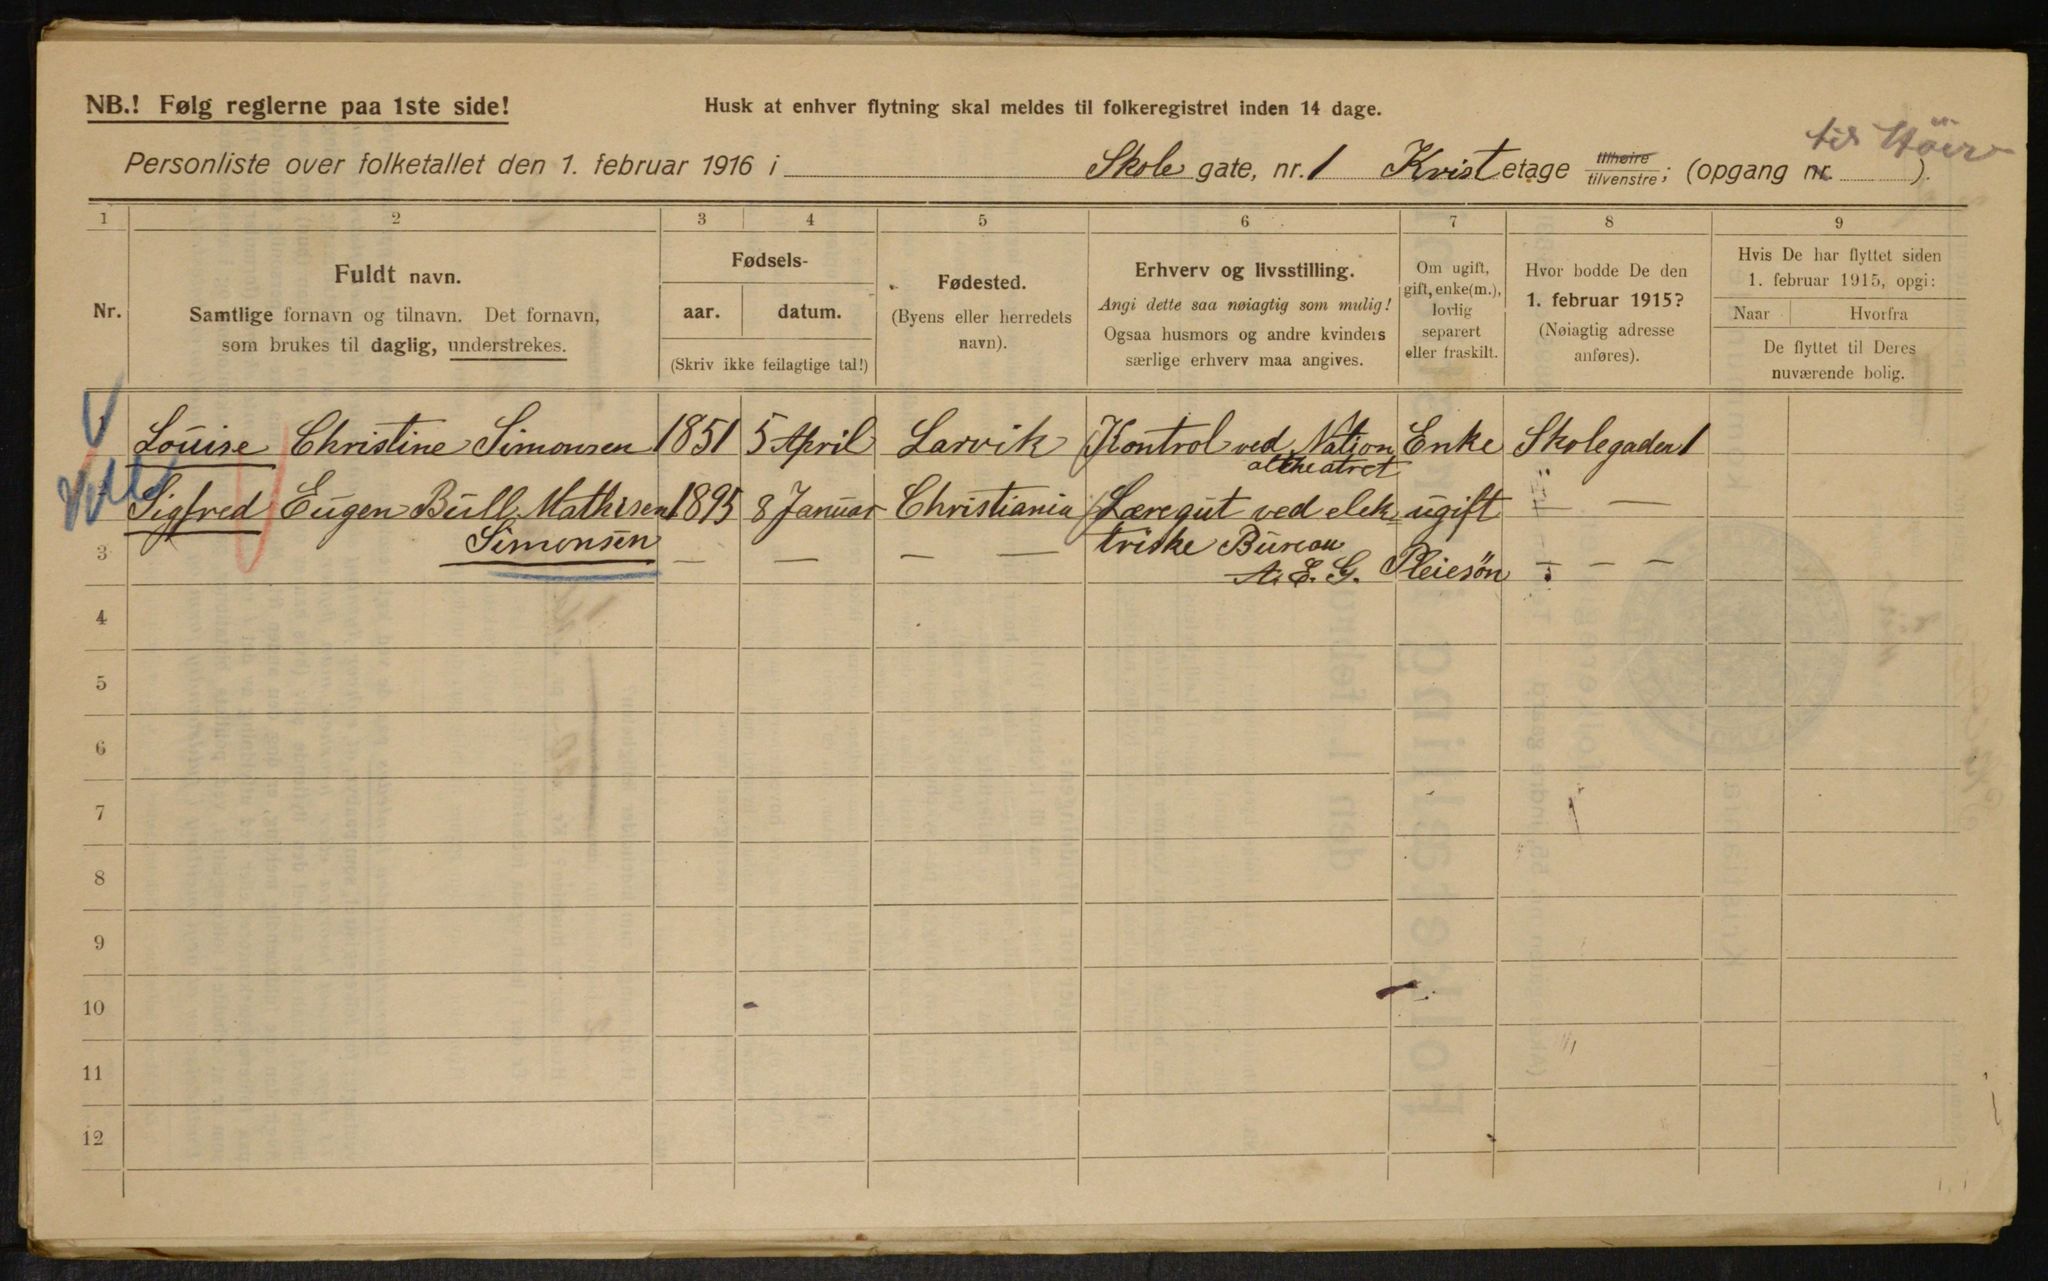 NB.! Følg reglerne paa 1ste side!
Husk at enhver flytning skal meldes til folkeregistret inden 14 dage.
til Höire
Personliste over folketallet den 1. februar 1916 i Skole gate, nr. 1 Kvist etage tilhøire tilvenstre; (opgang nr. ).
1 2 3 4 5 6 7 8 9
Nr.
Fuldt navn.
Samtlige fornavn og tilnavn. Det fornavn,
som brukes til daglig, understrekes.
Fødsels-
aar. datum.
(Skriv ikke feilagtige tal!)
Fødested.
(Byens eller herredets
navn).
Erhverv og livsstilling.
Angi dette saa nøiagtig som mulig!
Ogsaa husmors og andre kvinders
særlige erhverv maa angives.
Om ugift,
gift, enke(m.),
lovlig
separert
eller fraskilt.
Hvor bodde De den
1. februar 1915?
(Nøiagtig adresse
anføres).
Hvis De har flyttet siden
1. februar 1915, opgi:
Naar Hvorfra
De flyttet til Deres
nuværende bolig.
Louise Christine Simonsen 1851 5 April Larvik Kontrol ved Nation Enke Skolegaden 1
altheatret
Sigfred Eugen Bull Mathisen 1895 8 Januar Christiania Læregut ved elek= ugift " —
3 Simonsen — — — — triske Bureau
A. E. G. Pleiesön — — —
4
5
6
7
8
9
10
11
12